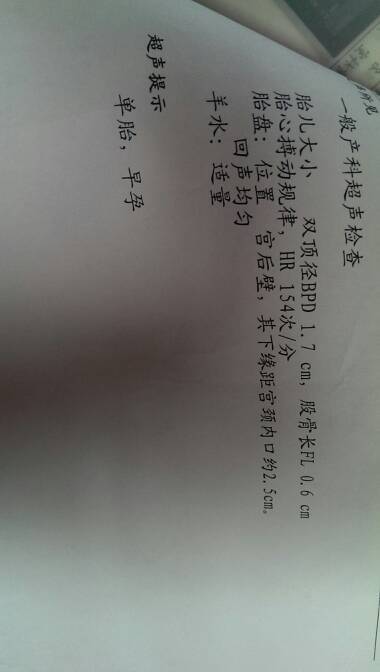 所见
一般产科超声检查
胎儿大小 双顶径BPD 1.7 cm, 股骨长FL 0.6 cm
胎心搏动规律, HR 154次/分
胎盘: 位置 宫后壁, 其下缘距宫颈内口约2.5cm。
回声均匀
羊水: 适量
超声提示
单胎, 早孕